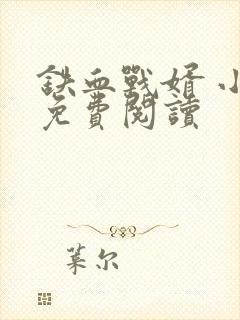 鉄血戰婿 小
免費閱讀
葉尔